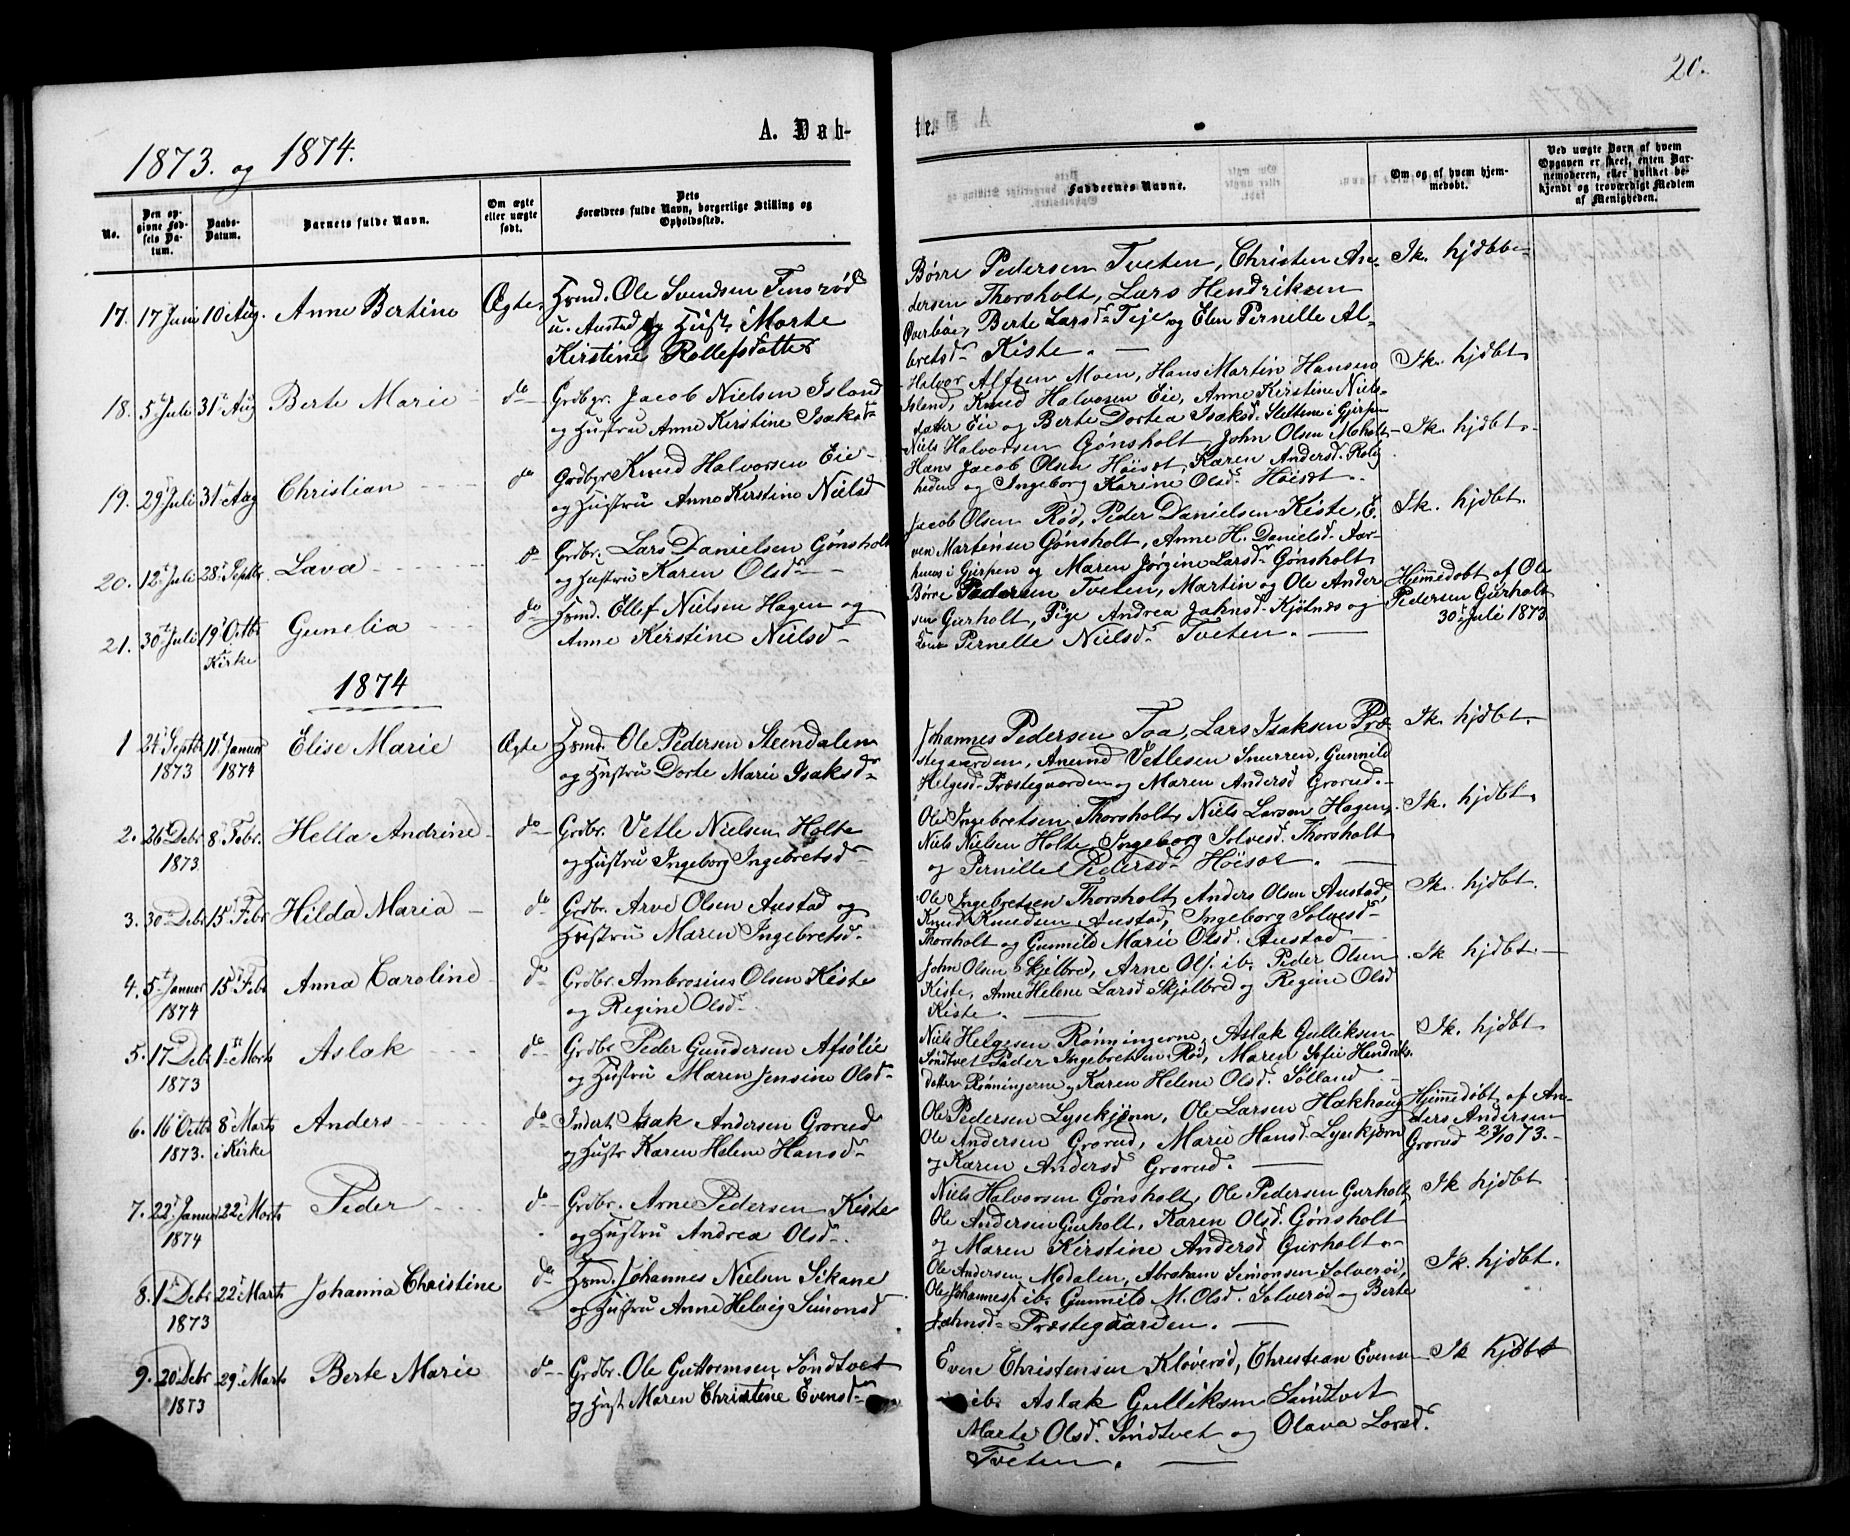 20.
1873. og 1874.
A. Døb-
te.
No.
Den op-
givne Fød-
sels Da-
tum.
Daabs-
Datum.
Barnets fulde Navn.
Om ægte
eller uægte
født.
Dets
Forældres fulde Navn, borgerlige Stilling og
Opholdssted.
Faddernes Navne.
Om og af hvem hjem-
medøbt.
Ved uægte Børn af hvem
Opgaven er skeet, enten Bar-
nemoderen, eller hvilket be-
kjendt og troværdigt Medlem
af Menigheden.
17. 17 Juni 10 Aug. Anne Bertine Ægte.
Hsmd. Ole Svendsen Finsrød
u. Austad og Hust. Marte
Kirstine Rollefsdatter
Børre Pedersen Tveten, Christen An-
dersen Thorsholt, Lars Hendriksen
Øverbøe, Berte Larsd. Teje og Elen Pernille Al-
bretsd. Kiste.
Ik. hjdbt.
18. 5t Juli 31t Aug Berte Marie do
Grdbgr. Jacob Nielsen Island
og Hustru Anne Kirstine Isaksd.
Halvor Alfsen Moen, Hans Martin Hansen
Island, Knud Halvorsen Eie, Anne Kirstine Niels-
datter Eie og Berte Dortea Isaksd. Slettene i Gjerpen
Ik. hjdbt.
19. 29t Juli 31t Aug Christian do
Grdbgr Knud Halvorsen Eie
og Hustru Anne Kirstine Nielsd
Niels Halvorsen Gønsholt, John Olsen Moholt
Hans Jacob Olsen Høiset, Karen Andersd. Rolig-
heden og Ingeborg Karine Olsd. Høiset.
Ik. hjdbt.
20. 12t Juli 28t Septbr. Lava do
Grdbr. Lars Danielsen Gønsholt
og Hustru Karen Olsd.
Jacob Olsen Rød, Peder Danielsen Kiste, E-
ven Martinsen Gønsholt, Anne H. Danielsd. Aar-
huus i Gjerpen og Maren Jørgine Larsd. Gønsholt
Ik. hjdbt.
21. 30t Juli 19t Octbr Kirke Gunelia do
Hsmd. Ellef Nielsen Hagen og
Anne Kirstine Nielsd.
Børre Pedersen Tveten, Martin og Ole Ander
sen Gurholt, Pige Andrea Jahnsd. Kjøtnes og
Pernelle Nielsd. Tveten.
Hjemmedøbt af Ole
Pedersen Gurholt
30t Juli 1873.
1874
1 24t Septbr 1873 11t Januar 1874 Elise Marie Ægte
Hsmd. Ole Pedersen Steendalen
og Hustru Dorte Marie Isaksd.
Johannes Pedersen Foa, Lars Isaksen Præ-
stegaarden, Anund Vetlesen Snurren, Gunnild
Helgesd. Præstegaarden og Maren Andersd Grorud.
Ik. hjdbt.
2. 26t Debr 1873. 8t Febr. Hella Andrine do
Grdbr. Vetle Nielsen Holte
og Hustru Ingeborg Ingebretsd.
Ole Ingebretsen Thorsholt, Niels Larsen Hagen,
Niels Nielsen Holte, Ingeborg Solvesd. Thorsholt
og Pernille Pedersd. Høiset.
Ik. hjdbt.
3. 30t Debr 15t Febr Hilda Maria do
Grdbr. Arve Olsen Austad og
Hustru Maren Ingebretsd.
Ole Ingebretsen Thorsholt, Anders Olsen Austad,
Knud Knudsen Austad, Ingeborg Solvesd.
Thorsholt og Gunnild Marie Olsd. Austad
Ik. hjdbt.
4. 5t Januar 1874 15t Febr Anna Caroline do
Grdbr. Ambrosius Olsen Kiste
og Regine Olsd.
John Olsen Skjelbred, Arne Ols. ib. Peder Olsen
Kiste, Anne Helene Larsd Skjelbred og Regine Olsd
Kiste.
Ik hjdbt.
5. 17t Debr 1873 1t Marts Aslak do
Grdbr Peder Gundersen Afsølie
og Hustru Maren Jensine Olsd.
Niels Helgesen Rønningerne, Aslak Gulliksen
Søndtvet Peder Ingebretsen Rød, Maren Sofie Hendriks-
datter Rønningerne og Karen Helene Olsd. Sølland
Ik. hjdbt
6. 16t Octbr 1873. 8t Marts i Kirke Anders do
Inderst Isak Andersen Grorud
og Hustr Karen Helene Hansd.
Ole Pedersen Lysekjønn, Ole Larsen Hækhaug
Ole Andersen Grorud, Marie Hansd. Lysekjønn
og Karen Andersd Grorud.
Hjemmedøbt af An-
ders Andersen
Grorud 23/10 73.
7. 22t Januar 1874 22t Marts Peder do
Grdbr. Arne Pedersen Kiste
og Hustru Andrea Olsd.
Niels Halvorsen Gønsholt, Ole Pedersen Gurholt,
Ole Andersen Gurholt, Karen Olsd. Gønsholt
og Maren Kirstine Andersd Gurholt
Ik hjdbt
8. 1t Debr 1873 22t Marts Johanna Christine do
Hsmd. Johannes Nielsen Sikane
og Hustru Anne Helvig Simonsd
Ole Andersen Modalen, Abraham Simonsen Solverød,
Ole Johanness. ib. Gunnild M. Olsd. Solverød og Berte
Jahnsd. Præstegaarden.
Ik. hjdbt.
9. 20t Debr 1873 29t Marts Berte Marie do
Grdbr. Ole Guttormsen Søndtvet
og Hust Maren Christine Evensd
Even Christensen Kløverød, Christian Evensen
ib. Aslak Gulliksen Søndtvet
Marte Olsd. Søndtvet og Olava Larsd.
Tveten.
Ik hjdbt